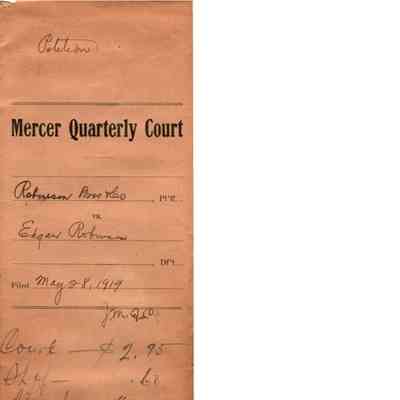 Petition
Mercer Quarterly Court
Robinson Bros & Co PI'ff.
vs.
Edgar Robinson
Df't.
Filed May 28, 1919
Court — $2.95
Shf — .60